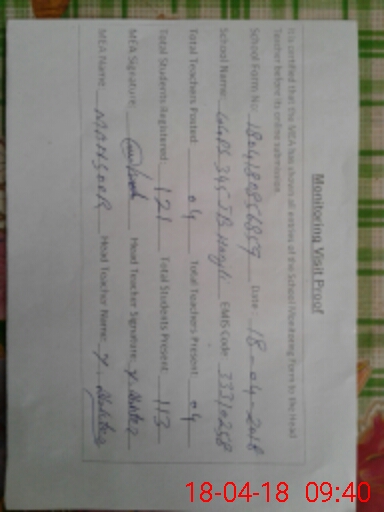 Monitoring Visit Proof
It is certified that the MEA has shown all entries of the School Monitoring Form to the Head
Teacher before its online submission.
School Form No: Date: 18-04-2018
School Name: GGPS 345 JB EMIS Code: 33310258
Total Teachers Posted: 04 Total Teachers Present: 04
Total Students Registered: 121 Total Students Present: 113
MEA Signature: Head Teacher Signature:
MEA Name: MANSOOR Head Teacher Name:
18-04-18 09:40